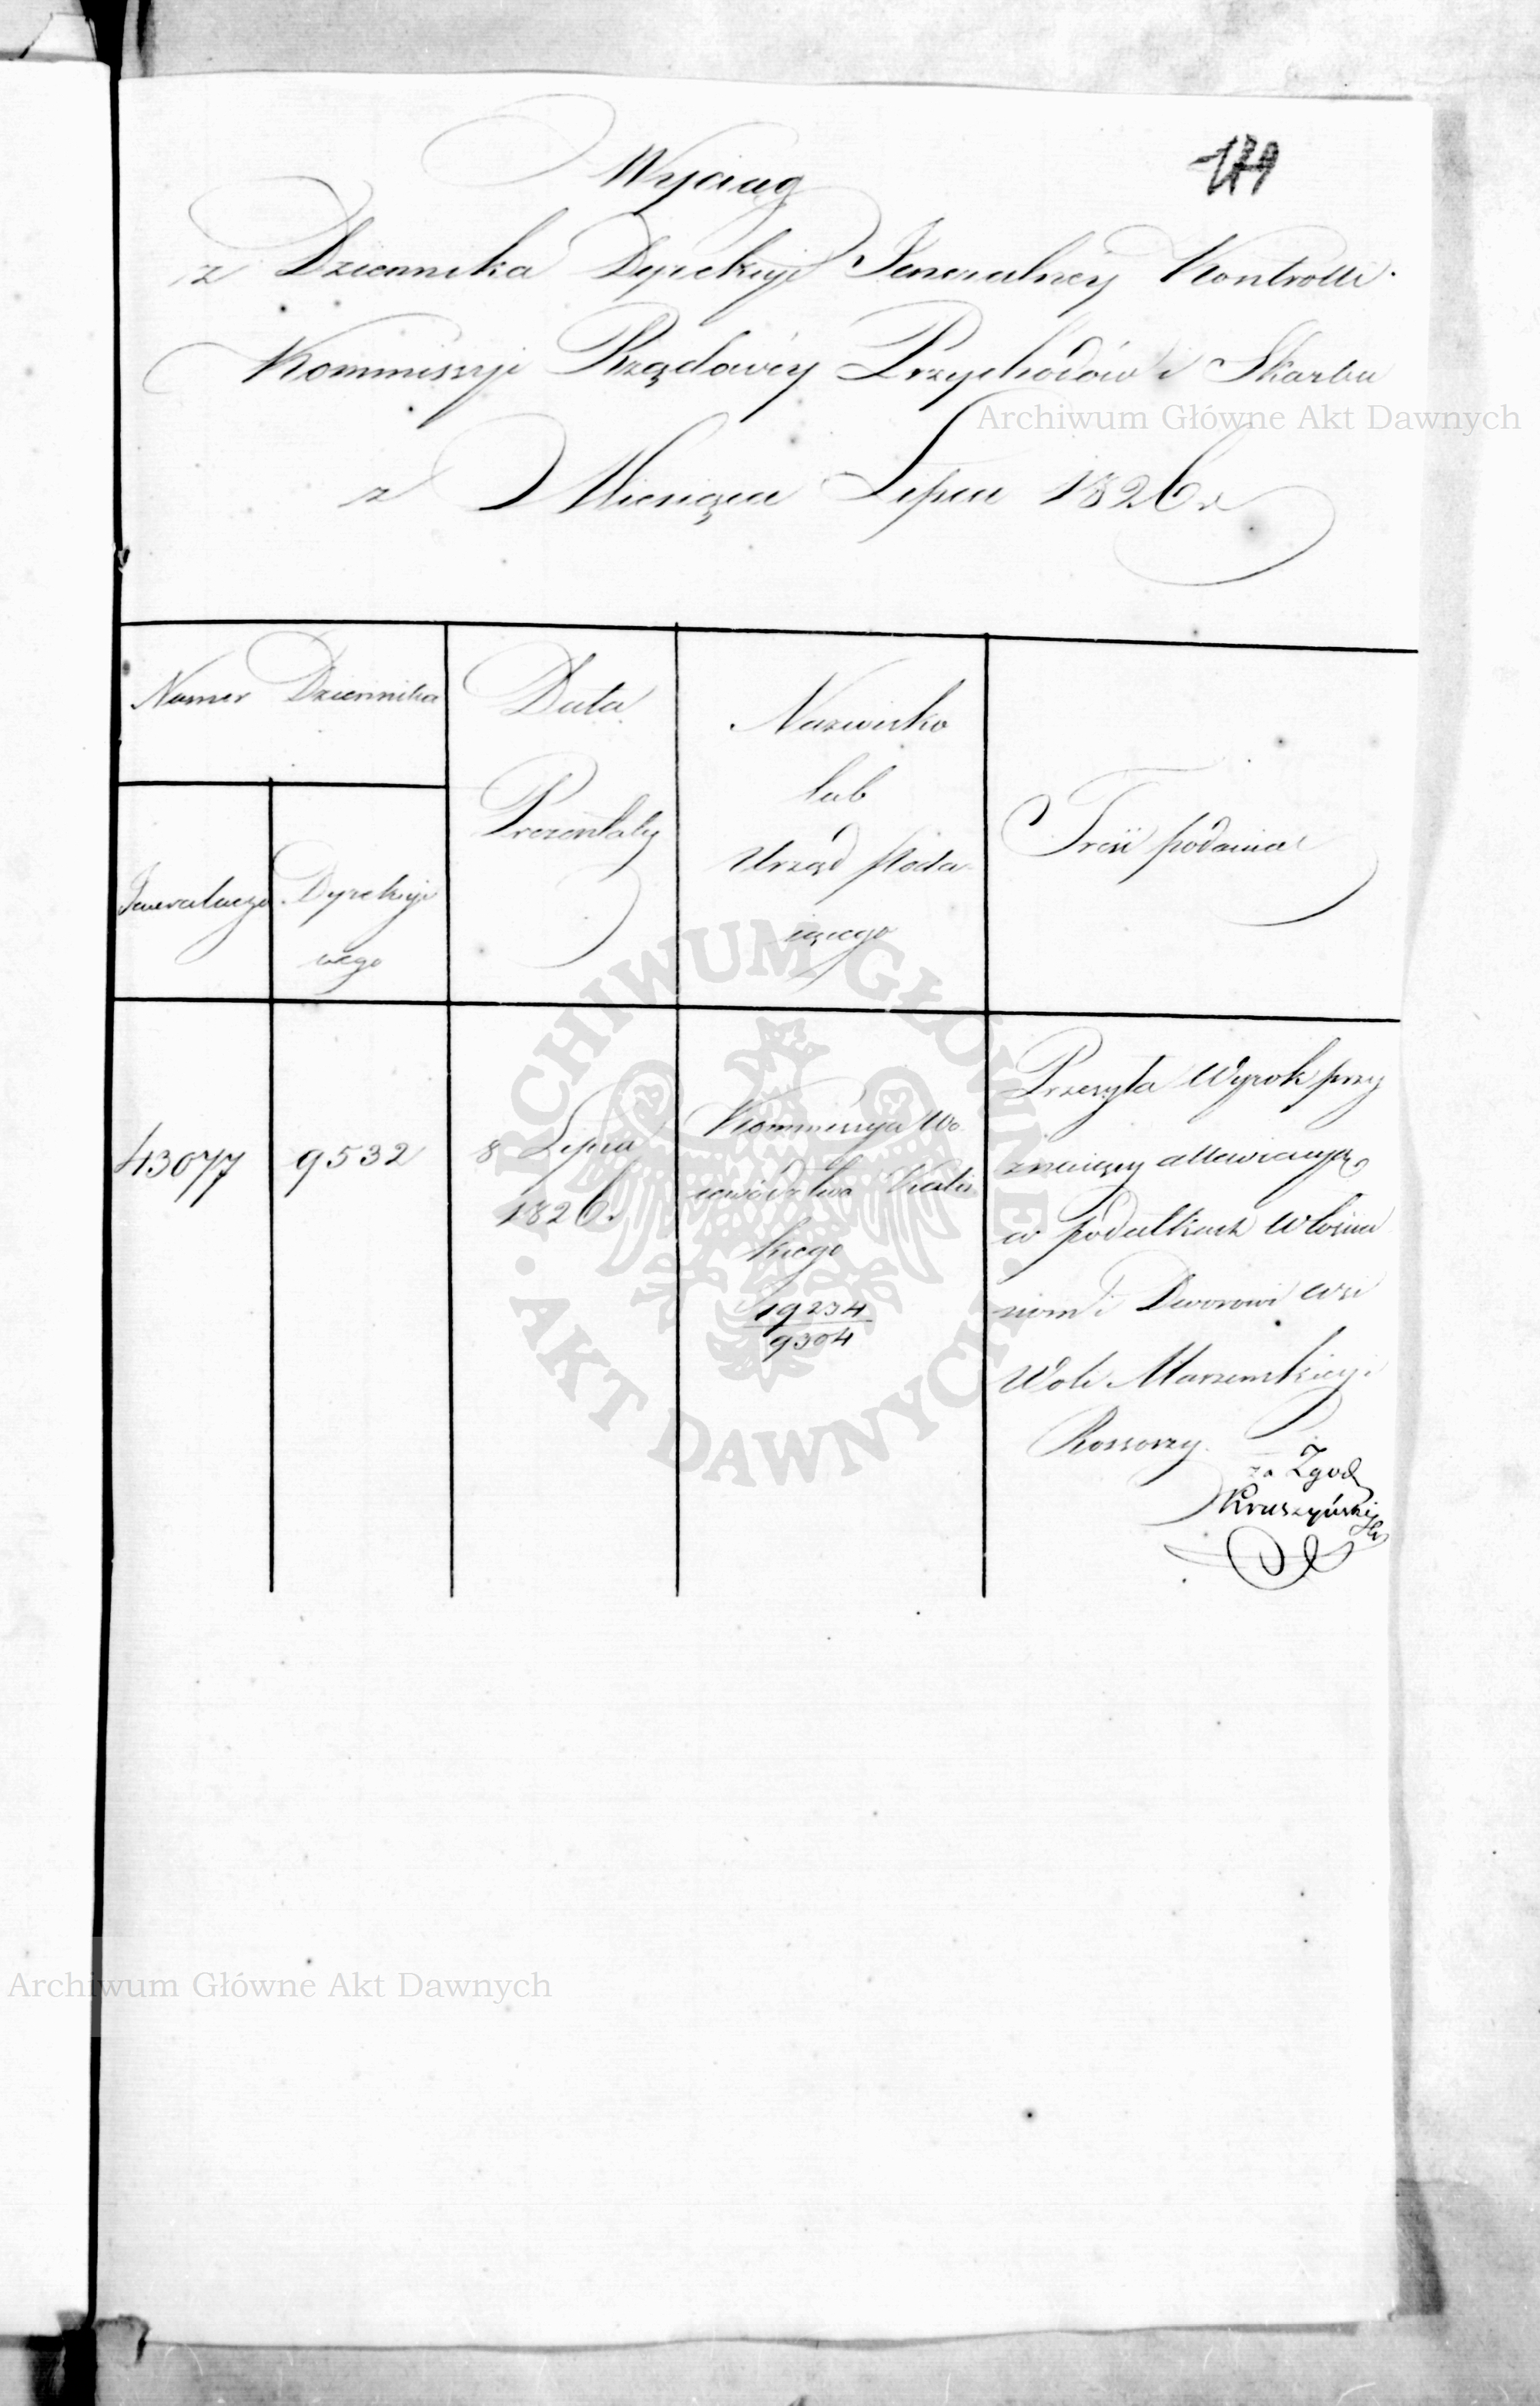 Wyciąg
z Dziennika Dyrekcyi Jeneralney Kontrolli
Kommissyi Rządowéy Przychodów i Skarbu
z Miesiąca Lipca 1826 r
Numer Dziennika
Jeneralnego
Dyrekcyi
nego
Data
Prezentaty
Nazwisko
lub
Urząd Poda
iącego
Treść podania
43077
9532
8 Lipca
1826.
Kommissya Wo
iewództwa Kalis
kiego
19234
9304
Przesyła Wyrok przy
znaiący allewiacyą
w podatkach Włościa
nom i Dworowi wsi
Woli Marzenskiey i
Rossoszy.
za Zgod
Kruszyński
Archiwum Główne Akt Dawnych
ARCHIWUM GŁÓWNE
AKT DAWNYCH
Archiwum Główne Akt Dawnych